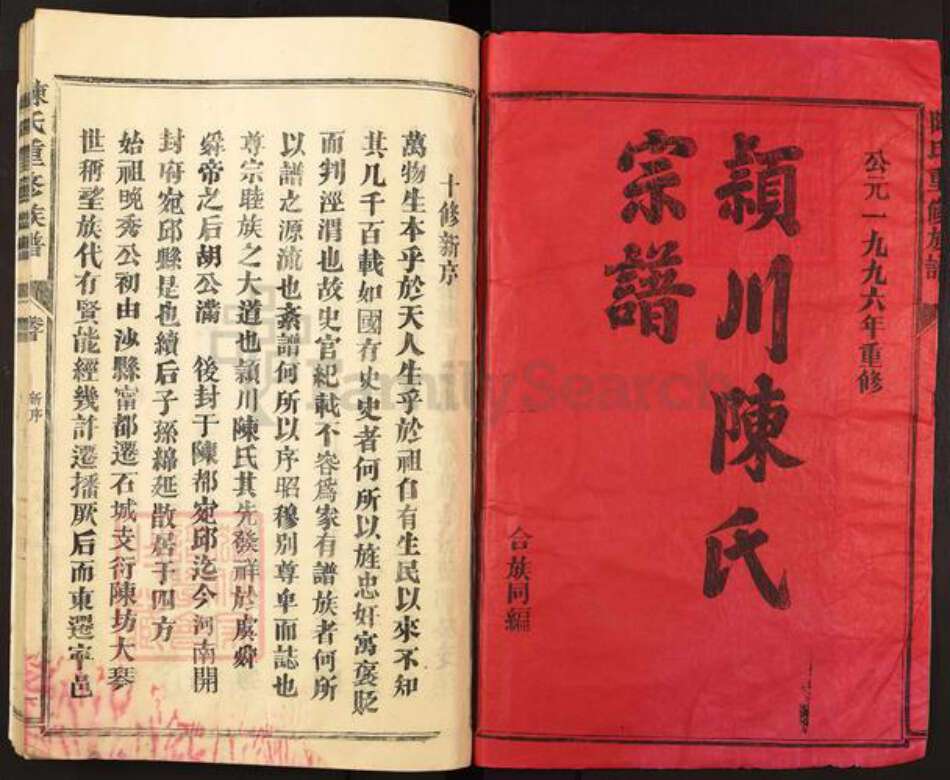 公元一九九六年重修
潁川陳氏
宗譜
合族同編
十修新序
萬物生本乎於天人生乎於祖自有生民以來不知
其几千百載如國有史史者何所以旌忠奸寓褒貶
而判涇渭也故史官紀載不容爲家有譜族者何所
以譜之源流也紊譜何所以序昭穆别尊卑而誌也
尊宗睦族之大道也潁川陳氏其先發祥於虞舜
舜帝之后胡公滿 後封于陳都宛邱迄今河南開
封府宛邱縣是也續后子孫綿延散居于四方
始祖晚秀公初由沙縣富都遷石城支衍陳坊大琴
世稱聖族代有賢能經幾許遷播厥后而東遷寧邑
陳氏重修族譜
新序
FamilySearch